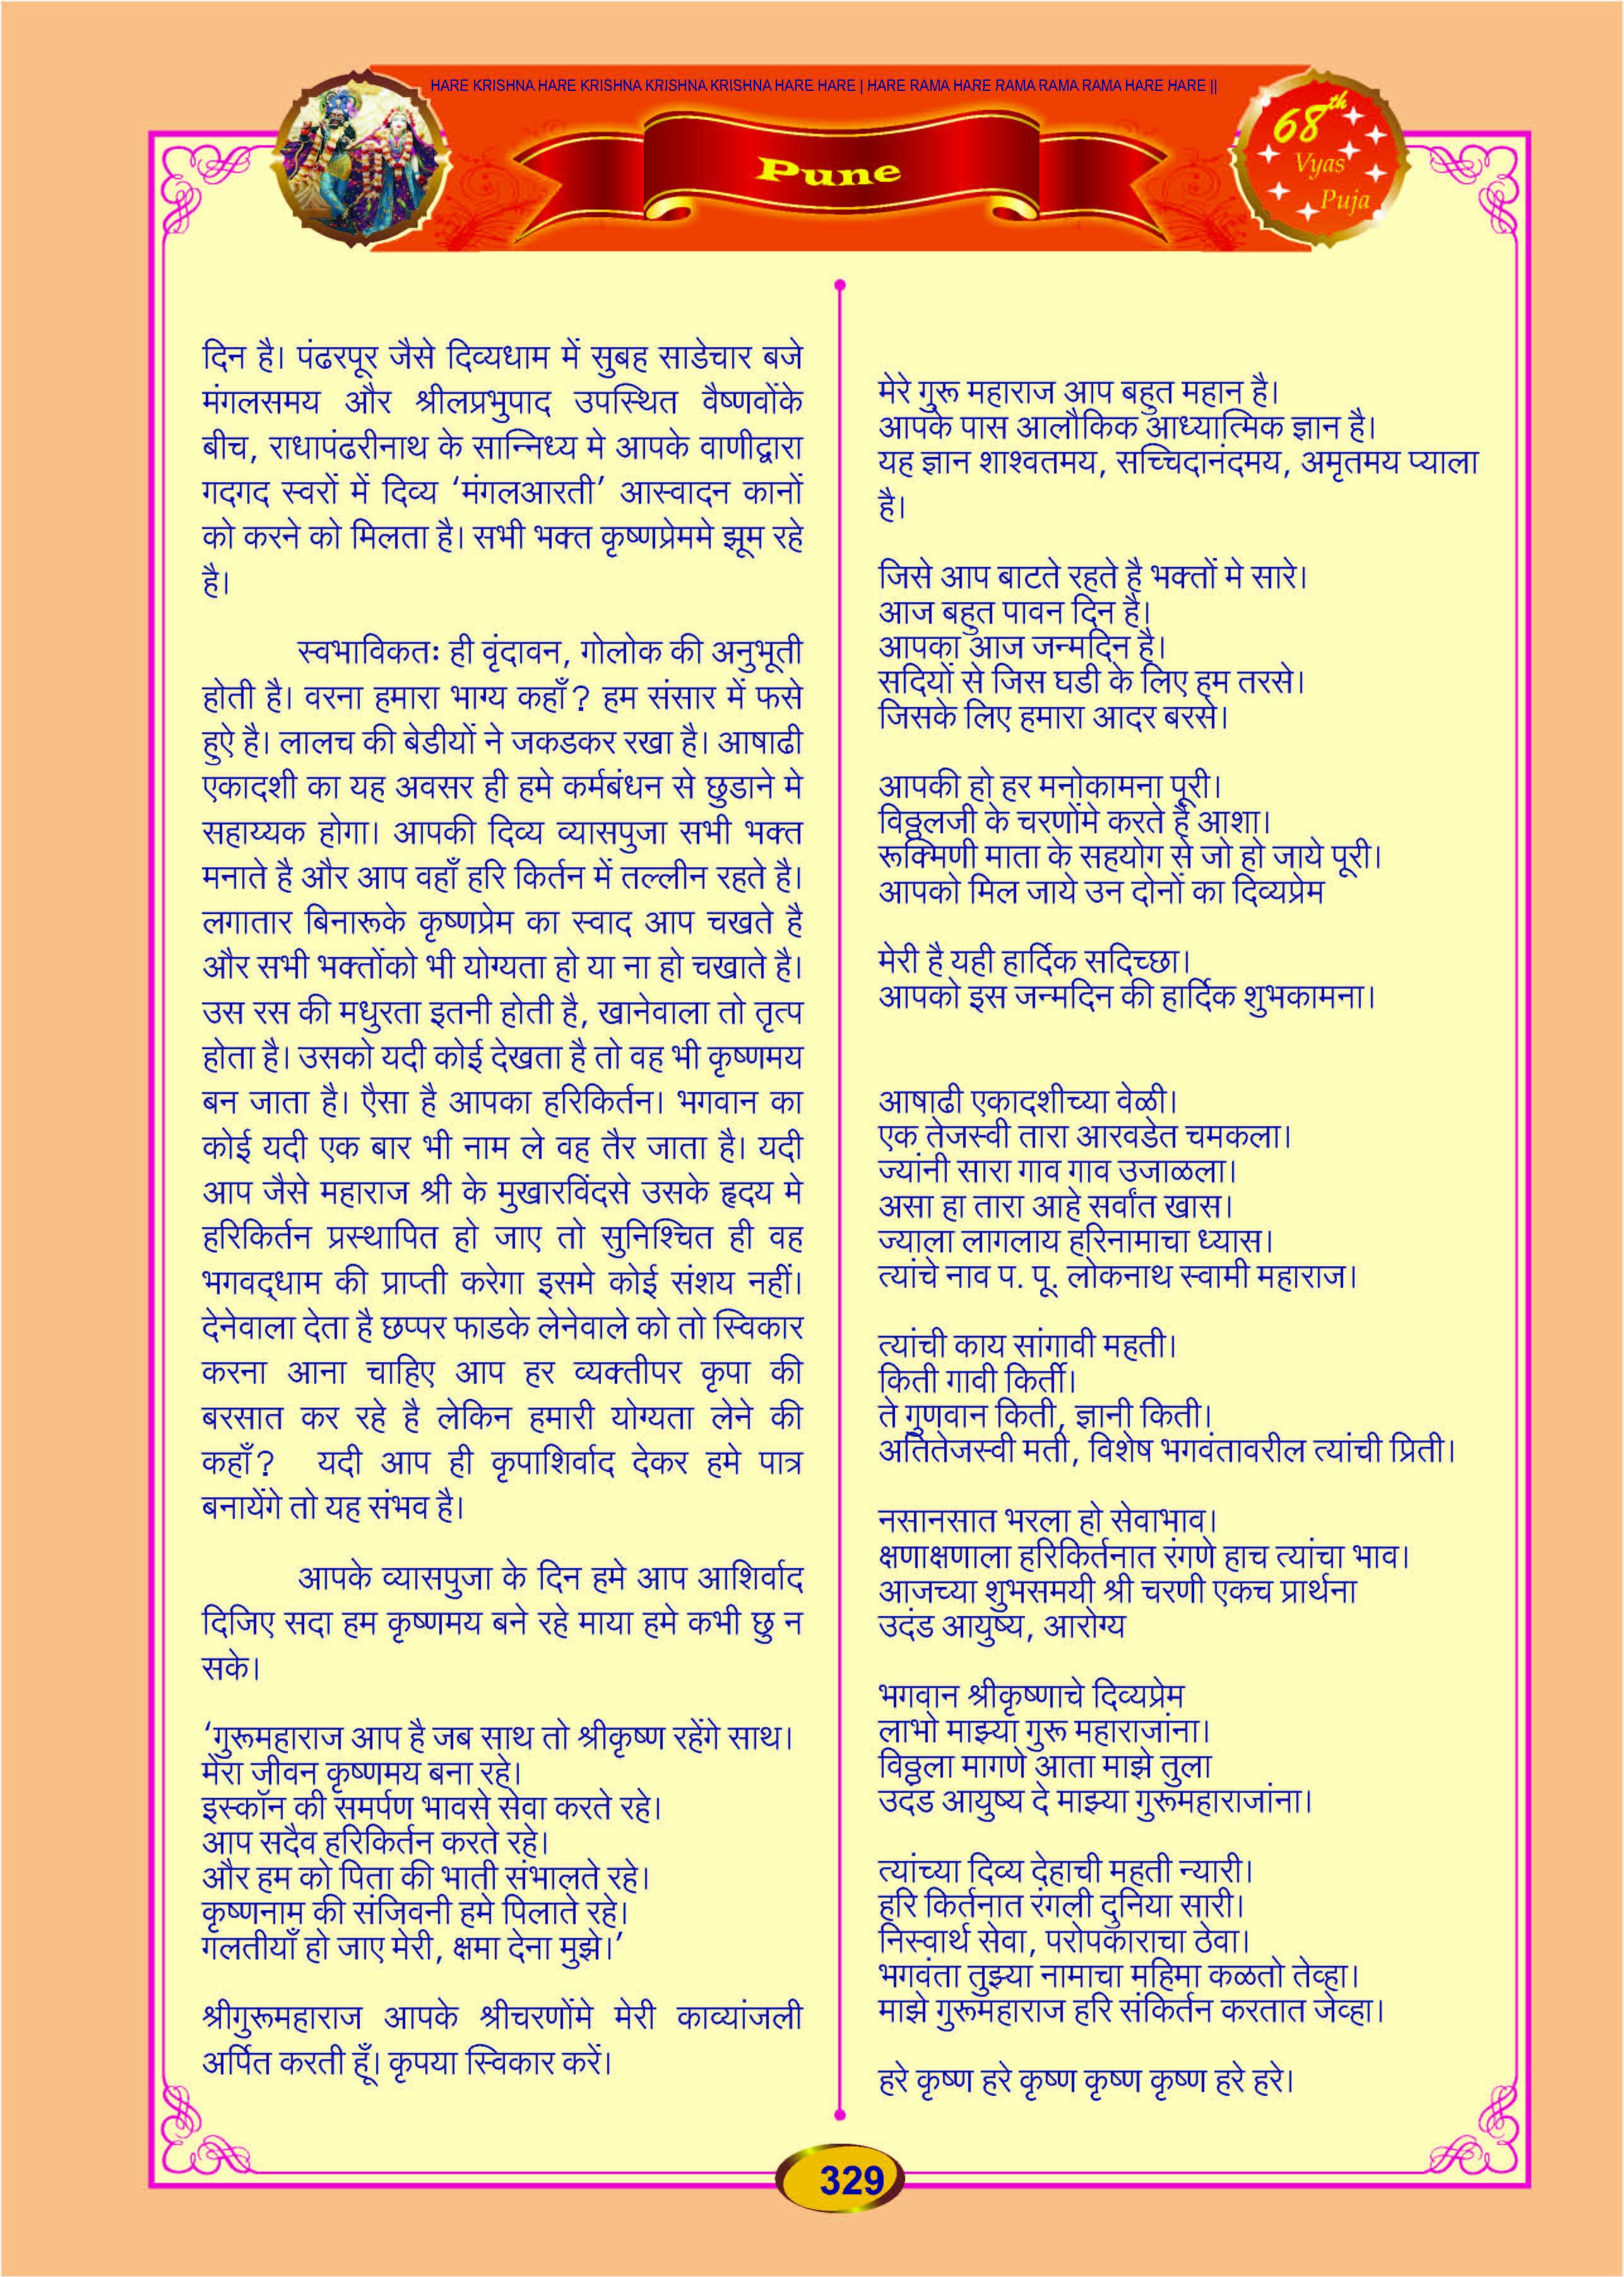 HARE KRISHNA HARE KRISHNA KRISHNA KRISHNA HARE HARE | HARE RAMA HARE RAMA RAMA RAMA HARE HARE ||
Pune
68th
Vyas
Puja
दिन है। पंढरपूर जैसे दिव्यधाम में सुबह साडेचार बजे
मंगलसमय और श्रीलप्रभुपाद उपस्थित वैष्णवोंके
बीच, राधापंढरीनाथ के सान्निध्य मे आपके वाणीद्वारा
गदगद स्वरों में दिव्य ‘मंगलआरती’ आस्वादन कानों
को करने को मिलता है। सभी भक्त कृष्णप्रेममे झूम रहे
है।
स्वभाविकतः ही वृंदावन, गोलोक की अनुभूती
होती है। वरना हमारा भाग्य कहाँ? हम संसार में फसे
हुऐ है। लालच की बेडीयों ने जकडकर रखा है। आषाढी
एकादशी का यह अवसर ही हमे कर्मबंधन से छुडाने मे
सहाय्यक होगा। आपकी दिव्य व्यासपुजा सभी भक्त
मनाते है और आप वहाँ हरि किर्तन में तल्लीन रहते है।
लगातार बिनारूके कृष्णप्रेम का स्वाद आप चखते है
और सभी भक्तोंको भी योग्यता हो या ना हो चखाते है।
उस रस की मधुरता इतनी होती है, खानेवाला तो तृत्प
होता है। उसको यदी कोई देखता है तो वह भी कृष्णमय
बन जाता है। एैसा है आपका हरिकिर्तन। भगवान का
कोई यदी एक बार भी नाम ले वह तैर जाता है। यदी
आप जैसे महाराज श्री के मुखारविंदसे उसके हृदय मे
हरिकिर्तन प्रस्थापित हो जाए तो सुनिश्चित ही वह
भगवद्धाम की प्राप्ती करेगा इसमे कोई संशय नहीं।
देनेवाला देता है छप्पर फाडके लेनेवाले को तो स्विकार
करना आना चाहिए आप हर व्यक्तीपर कृपा की
बरसात कर रहे है लेकिन हमारी योग्यता लेने की
कहाँ? यदी आप ही कृपाशिर्वाद देकर हमे पात्र
बनायेंगे तो यह संभव है।
आपके व्यासपुजा के दिन हमे आप आशिर्वाद
दिजिए सदा हम कृष्णमय बने रहे माया हमे कभी छु न
सके।
‘गुरूमहाराज आप है जब साथ तो श्रीकृष्ण रहेंगे साथ।
मेरा जीवन कृष्णमय बना रहे।
इस्कॉन की समर्पण भावसे सेवा करते रहे।
आप सदैव हरिकिर्तन करते रहे।
और हम को पिता की भाती संभालते रहे।
कृष्णनाम की संजिवनी हमे पिलाते रहे।
गलतीयाँ हो जाए मेरी, क्षमा देना मुझे।’
श्रीगुरूमहाराज आपके श्रीचरणोंमे मेरी काव्यांजली
अर्पित करती हूँ। कृपया स्विकार करें।
मेरे गुरू महाराज आप बहुत महान है।
आपके पास आलौकिक आध्यात्मिक ज्ञान है।
यह ज्ञान शाश्वतमय, सच्चिदानंदमय, अमृतमय प्याला
है।
जिसे आप बाटते रहते है भक्तों मे सारे।
आज बहुत पावन दिन है।
आपका आज जन्मदिन है।
सदियों से जिस घडी के लिए हम तरसे।
जिसके लिए हमारा आदर बरसे।
आपकी हो हर मनोकामना पूरी।
विठ्ठलजी के चरणोंमे करते हैं आशा।
रूक्मिणी माता के सहयोग से जो हो जाये पूरी।
आपको मिल जाये उन दोनों का दिव्यप्रेम
मेरी है यही हार्दिक सदिच्छा।
आपको इस जन्मदिन की हार्दिक शुभकामना।
आषाढी एकादशीच्या वेळी।
एक तेजस्वी तारा आरवडेत चमकला।
ज्यांनी सारा गाव गाव उजाळला।
असा हा तारा आहे सर्वांत खास।
ज्याला लागलाय हरिनामाचा ध्यास।
त्यांचे नाव प. पू. लोकनाथ स्वामी महाराज।
त्यांची काय सांगावी महती।
किती गावी किर्ती।
ते गुणवान किती, ज्ञानी किती।
अतितेजस्वी मती, विशेष भगवंतावरील त्यांची प्रिती।
नसानसात भरला हो सेवाभाव।
क्षणाक्षणाला हरिकिर्तनात रंगणे हाच त्यांचा भाव।
आजच्या शुभसमयी श्री चरणी एकच प्रार्थना
उदंड आयुष्य, आरोग्य
भगवान श्रीकृष्णाचे दिव्यप्रेम
लाभो माझ्या गुरू महाराजांना।
विठ्ठला मागणे आता माझे तुला
उदंड आयुष्य दे माझ्या गुरूमहाराजांना।
त्यांच्या दिव्य देहाची महती न्यारी।
हरि किर्तनात रंगली दुनिया सारी।
निस्वार्थ सेवा, परोपकाराचा ठेवा।
भगवंता तुझ्या नामाचा महिमा कळतो तेव्हा।
माझे गुरूमहाराज हरि संकिर्तन करतात जेव्हा।
हरे कृष्ण हरे कृष्ण कृष्ण कृष्ण हरे हरे।
329